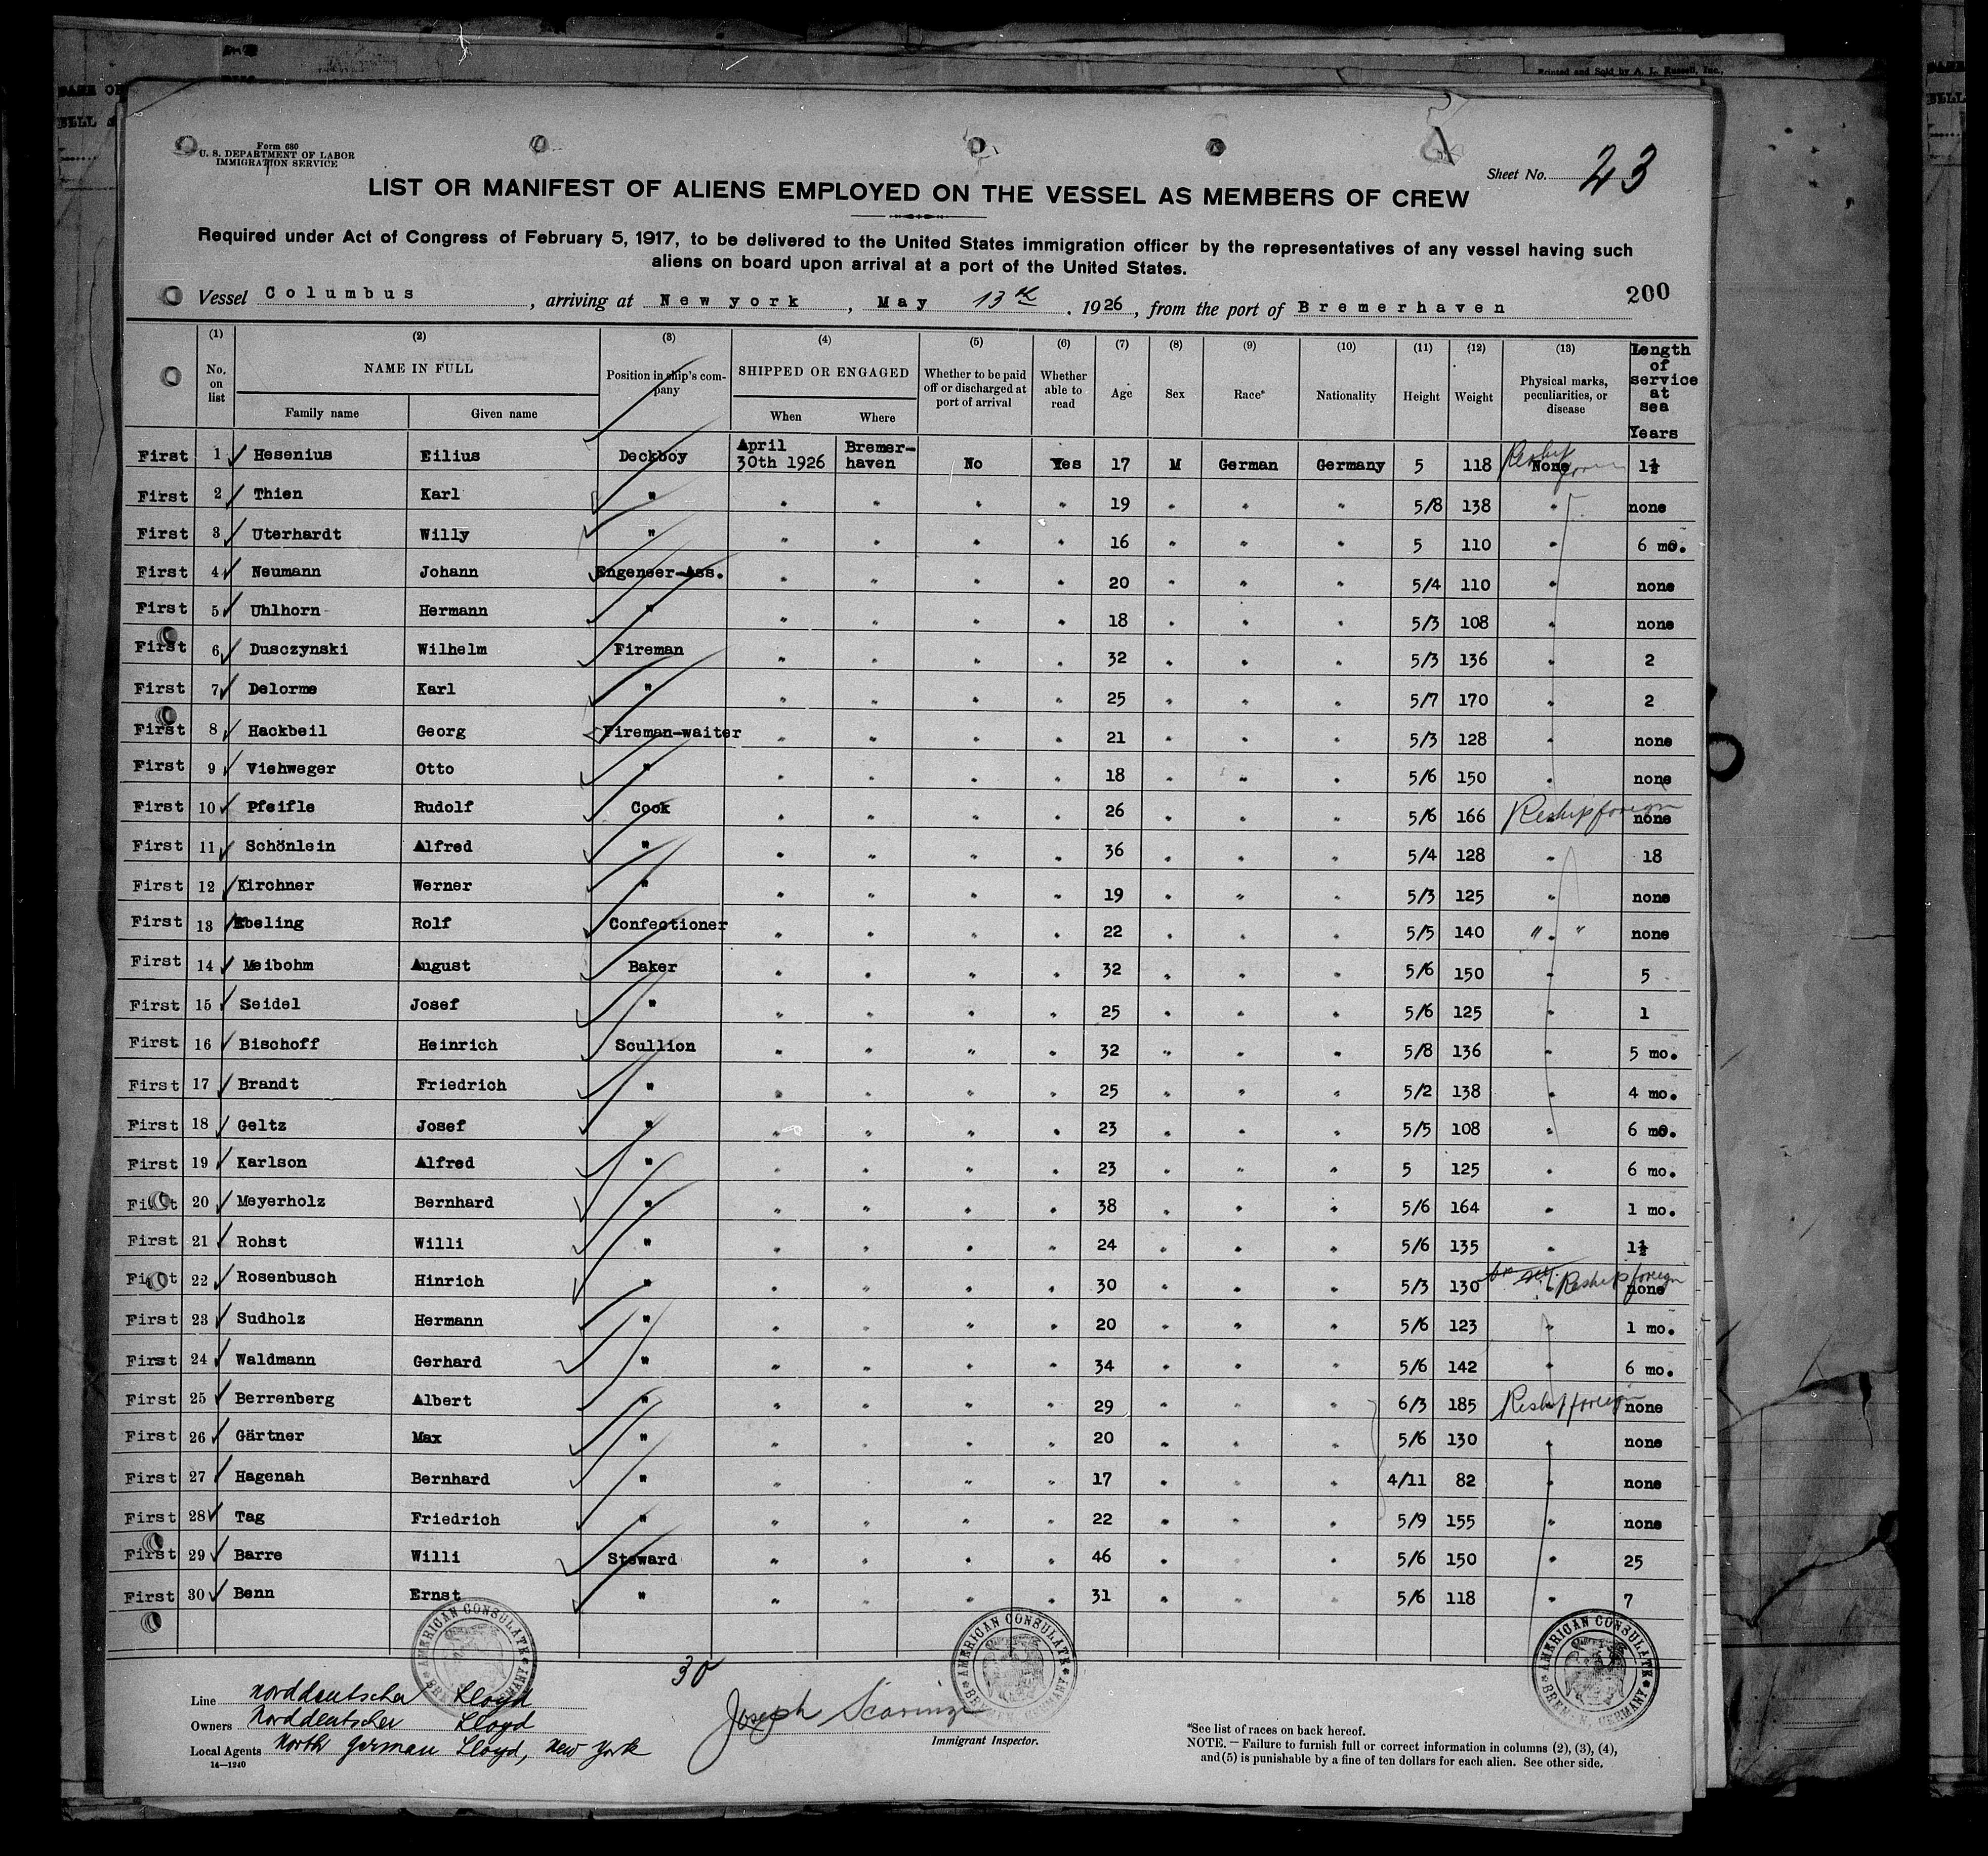 Printed and Sold by A. L. Russell, Inc.,
Form 680
U. S. DEPARTMENT OF LABOR
IMMIGRATION SERVICE
Sheet No. 23
LIST OR MANIFEST OF ALIENS EMPLOYED ON THE VESSEL AS MEMBERS OF CREW
Required under Act of Congress of February 5, 1917, to be delivered to the United States immigration officer by the representatives of any vessel having such
aliens on board upon arrival at a port of the United States.
200
Vessel Columbus, arriving at New york, May 13th, 1926, from the port of Bremerhaven
(1) (2) (3) (4) (5) (6) (7) (8) (9) (10) (11) (12) (13)
No. on list NAME IN FULL Family name Given name Position in ship's company SHIPPED OR ENGAGED When Where Whether to be paid off or discharged at port of arrival Whether able to read Age Sex Race* Nationality Height Weight Physical marks, peculiarities, or disease Length of service at sea Years
First 1 Hesenius Eilius Deckboy April 30th 1926 Bremer-haven No Yes 17 M German Germany 5 118 None Reship foreign 1½
First 2 Thien Karl " " " " " 19 " " " 5/8 138 " none
First 3 Uterhardt Willy " " " " " 16 " " " 5 110 " 6 mo.
First 4 Neumann Johann Engeneer-Ass. " " " " 20 " " " 5/4 110 " none
First 5 Uhlhorn Hermann " " " " " 18 " " " 5/3 108 " none
First 6 Dusczynski Wilhelm Fireman " " " " 32 " " " 5/3 136 " 2
First 7 Delorme Karl " " " " " 25 " " " 5/7 170 " 2
First 8 Hackbeil Georg Fireman-waiter " " " " 21 " " " 5/3 128 " none
First 9 Viehweger Otto " " " " " 18 " " " 5/6 150 " none
First 10 Pfeifle Rudolf Cook " " " " 26 " " " 5/6 166 " Reship foreign none
First 11 Schönlein Alfred " " " " " 36 " " " 5/4 128 " 18
First 12 Kirchner Werner " " " " " 19 " " " 5/3 125 " none
First 13 Ebeling Rolf Confectioner " " " " 22 " " " 5/5 140 " " " none
First 14 Meibohm August Baker " " " " 32 " " " 5/6 150 " 5
First 15 Seidel Josef " " " " " 25 " " " 5/6 125 " 1
First 16 Bischoff Heinrich Scullion " " " " 32 " " " 5/8 136 " 5 mo.
First 17 Brandt Friedrich " " " " " 25 " " " 5/2 138 " 4 mo.
First 18 Geltz Josef " " " " " 23 " " " 5/5 108 " 6 mo.
First 19 Karlson Alfred " " " " " 23 " " " 5 125 " 6 mo.
First 20 Meyerholz Bernhard " " " " " 38 " " " 5/6 164 " 1 mo.
First 21 Rohst Willi " " " " " 24 " " " 5/6 135 " 1½
First 22 Rosenbusch Hinrich " " " " " 30 " " " 5/3 130 " Reship foreign none
First 23 Sudholz Hermann " " " " " 20 " " " 5/6 123 " 1 mo.
First 24 Waldmann Gerhard " " " " " 34 " " " 5/6 142 " 6 mo.
First 25 Berrenberg Albert " " " " " 29 " " " 6/3 185 Reship foreign none
First 26 Gärtner Max " " " " " 20 " " " 5/6 130 " none
First 27 Hagenah Bernhard " " " " " 17 " " " 4/11 82 " none
First 28 Tag Friedrich " " " " " 22 " " " 5/9 155 " none
First 29 Barre Willi Steward " " " " 46 " " " 5/6 150 " 25
First 30 Benn Ernst " " " " " 31 " " " 5/6 118 " 7
AMERICAN CONSULATE BREMEN, GERMANY
AMERICAN CONSULATE BREMEN, GERMANY
AMERICAN CONSULATE BREMEN, GERMANY
30
Line Norddeutscher Lloyd
Owners Norddeutscher Lloyd
Local Agents North German Lloyd, New York
14—1240
Joseph
Immigrant Inspector.
*See list of races on back hereof.
NOTE.—Failure to furnish full or correct information in columns (2), (3), (4),
and (5) is punishable by a fine of ten dollars for each alien. See other side.